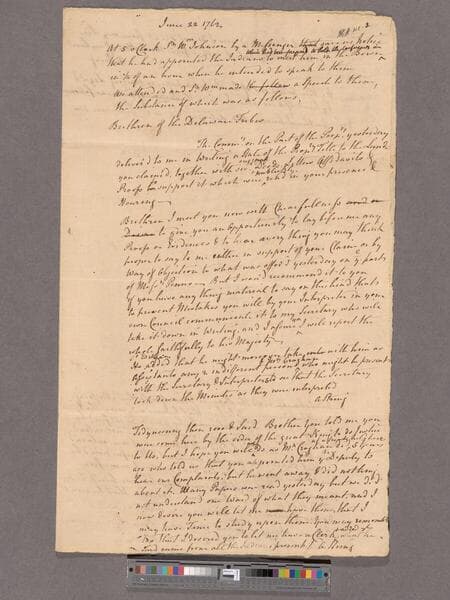 June 22 1762.
At 5 oClock Sr Wm Johnson by a Messenger gave us notice
that he had appointed the Indians to meet him in the
in ½ of an hour when he intended to speak to them
We attended and Sr Wm made a Speech to them,
the Substance of which was as follows,
Brethren of the Delaware Tribes
The Commrs on the Part of the Propr yesterday
delivered to me in Writing a State of the Propr Title to the Lands
you claimed, together with Affidavits &
Proofs in support of it which were read in your presence &
Hearing
Brethren I meet you now with Chearfulness
to give you an opportunity to lay before me any
Proofs or Evidences & to hear every thing you may think
proper to say to me either in support of your Claim or by
Way of Objection to what was offer'd yesterday on ye part
of Messrs Penns — But I would recommend it to you
if you have any thing material to say on this head that
to prevent Mistakes you will by your Interpreter in your
own Council communicate it to my Secretary who will
take it down in Writing, and I assure you I will report the
whole faithfully to his Majesty —
He added that he might take with him as
Assistants any 2 indifferent persons who might be present
with the Secretary & Interpreter and see that the Secretary
took down the Minutes as they were interpreted
a String
Tedyuscung then rose & said Brother You told me you
were come here by the order of the great King to do Justice
to Us, but I hope you will not do as Mr Croghan did, 3 years
ago who told us that you appointed him yr Deputy to
hear our Complaints, but he went away & did nothing
about it. Many Papers were read yesterday but we did
not understand one word of what they meant, and I
now desire you will let me have them, that I
may have Time to study upon them. You may remember
Bror that I desired you to let me have a Clerk,
Said came from all the Indians present a String